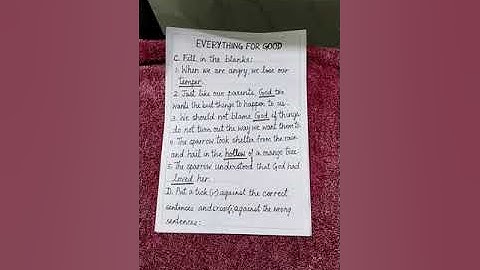 EVERYTHING FOR GOOD
C. Fill in the blanks:
1. When we are angry, we lose our
temper.
2. Just like our parents, God too
wants the best things to happen to us.
3. We should not blame God if things
do not turn out the way we want them to.
4. The sparrow took shelter from the rain
and hail in the hollow of a mango tree.
5. The sparrow understood that God had
loved her.
D. Put a tick (✓) against the correct
sentences and cross(x) against the wrong
sentences: